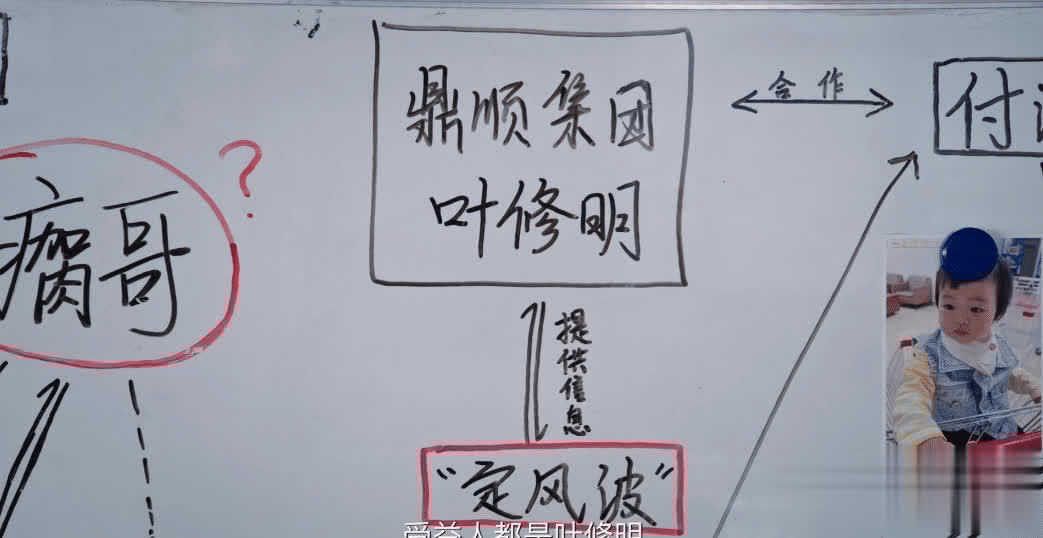 鼎顺集团
叶修明
合作
付
瘸哥
?
提供信息
“定风波”
受益人都是叶修明